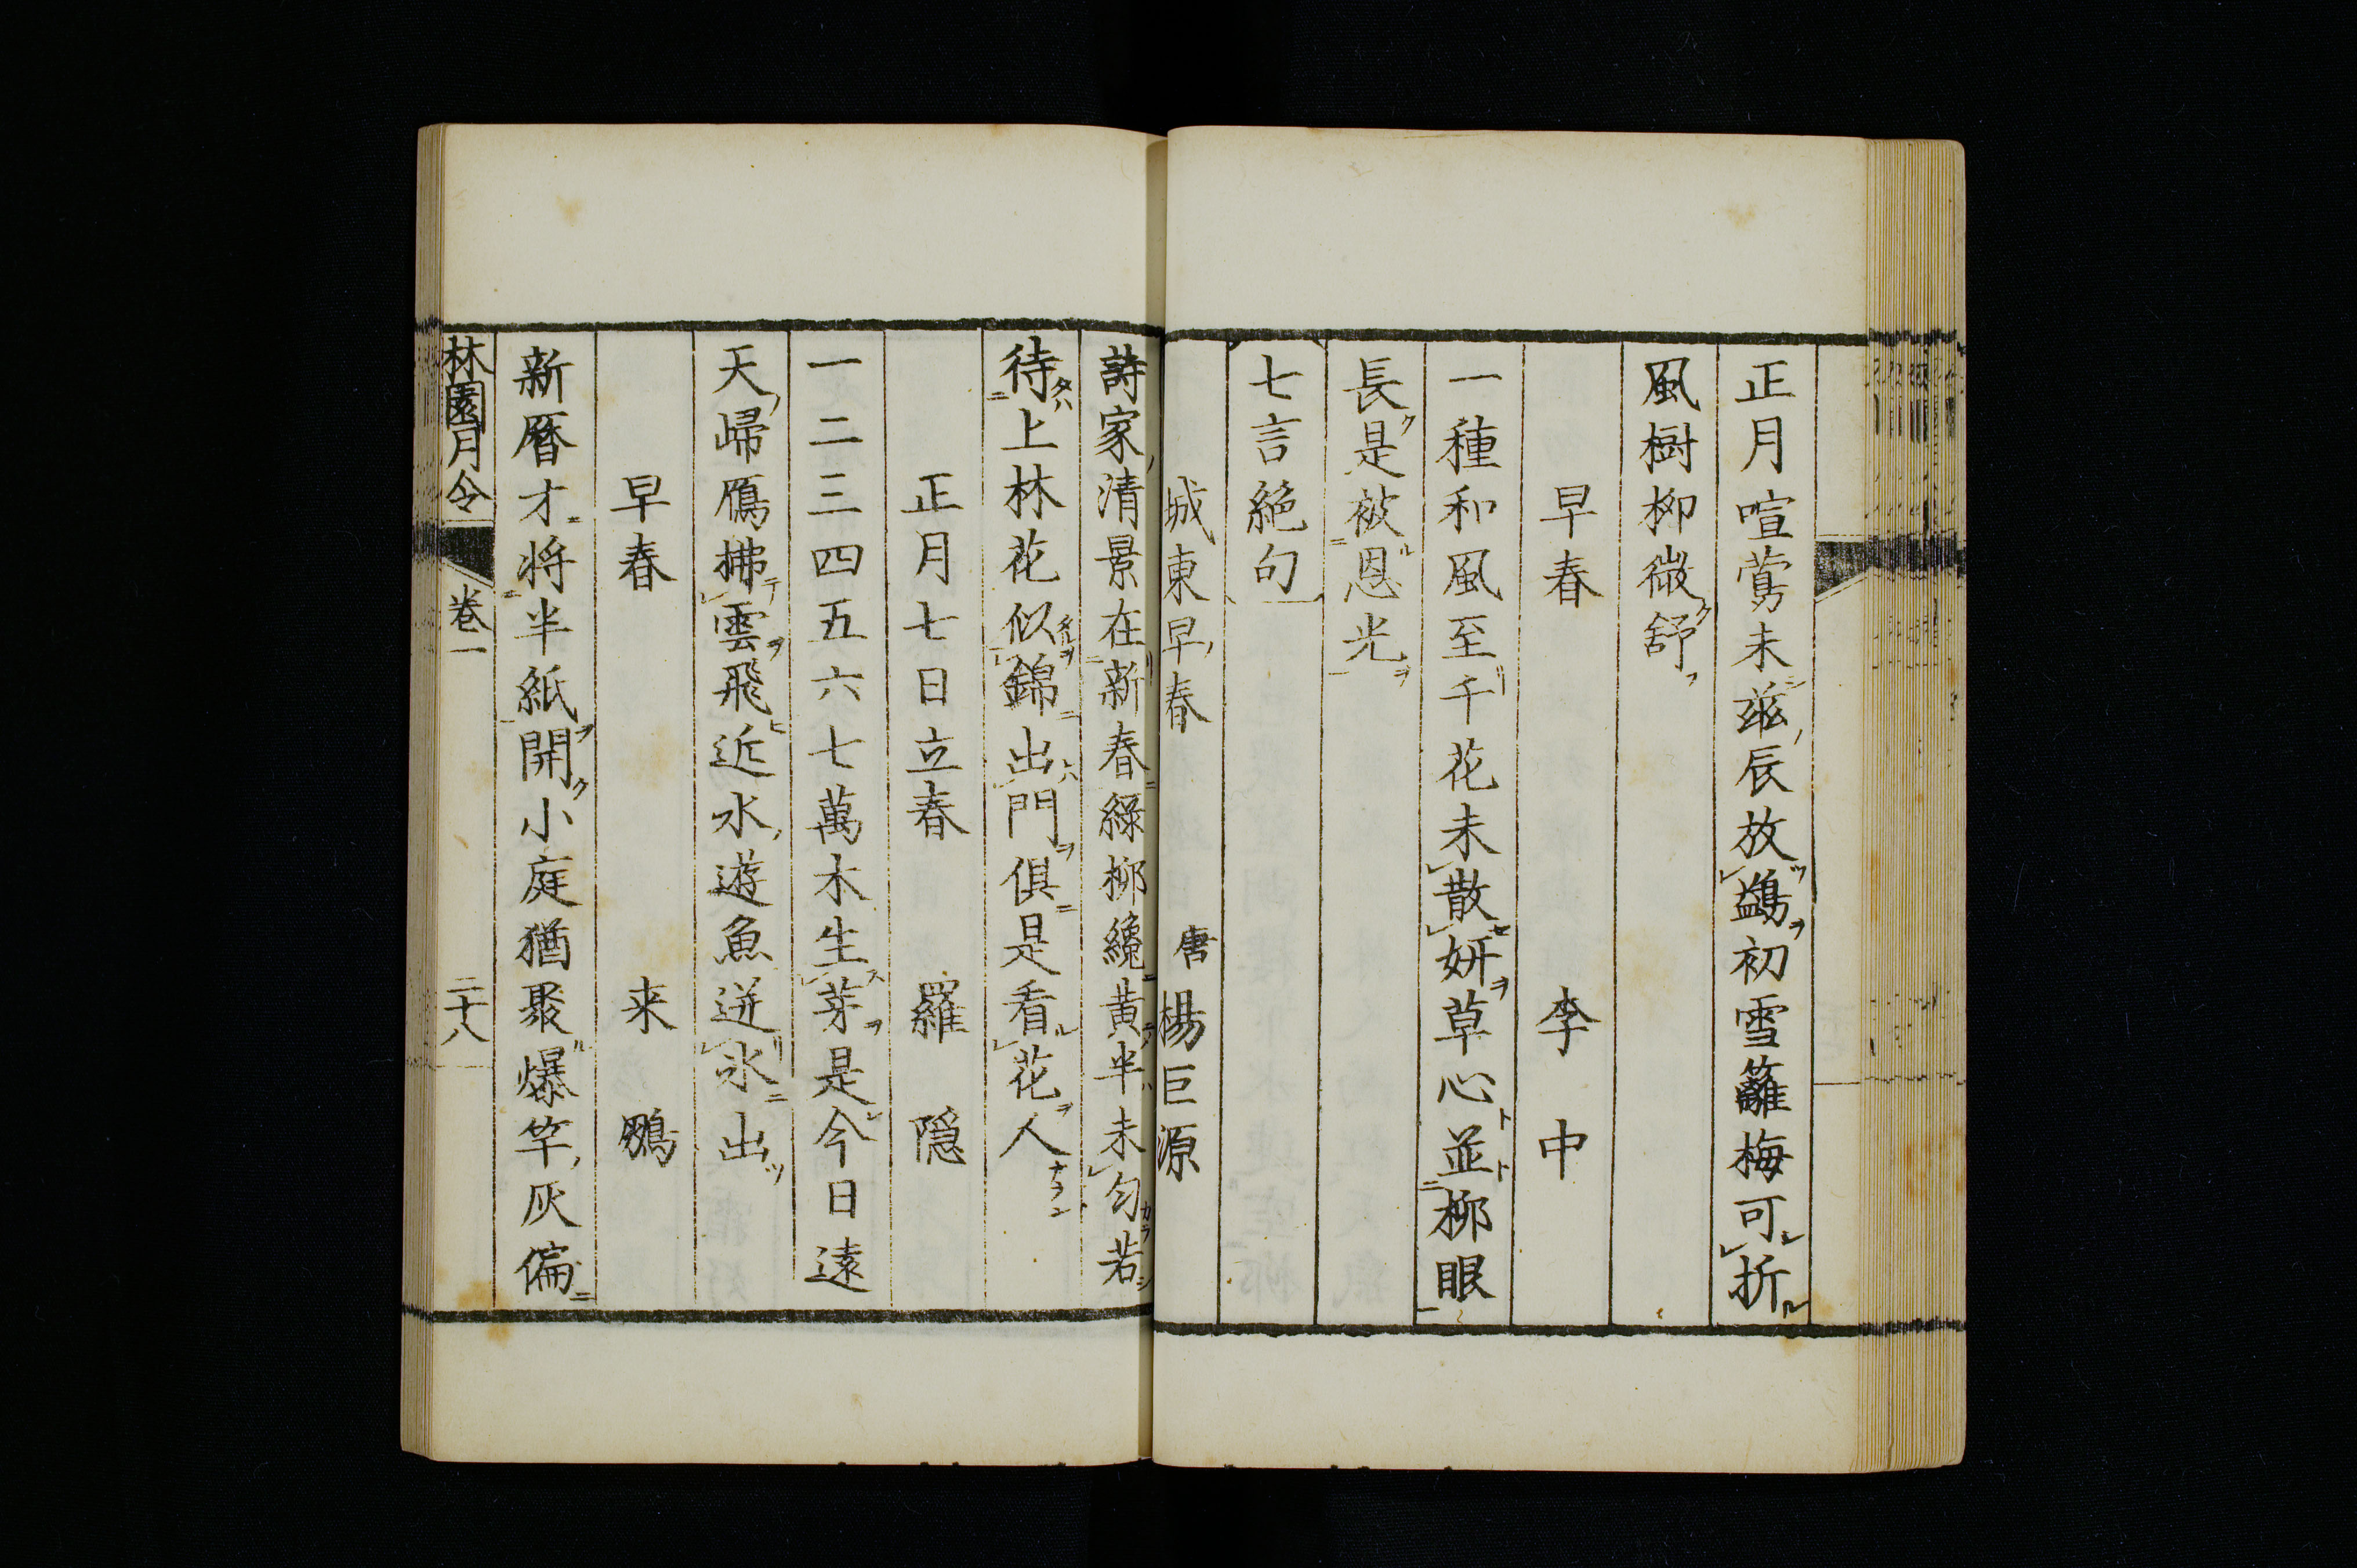 正月喧鶯未茲辰放鷁初雪籬梅可折
風樹柳微舒
早春 李中
一種和風至千花未散妍草心並柳眼
長是被恩光
七言絶句
城東早春 唐楊巨源
詩家清景在新春緑柳纔黄半未匀若
待上林花似錦出門俱是看花人
正月七日立春 羅隠
一二三四五六七萬木生芽是今日遠
天歸鴈拂雲飛近水遊魚迸氷出
早春 来鵬
新暦才将半紙開小庭猶聚爆竿灰偏
林園月令 巻一 二十八